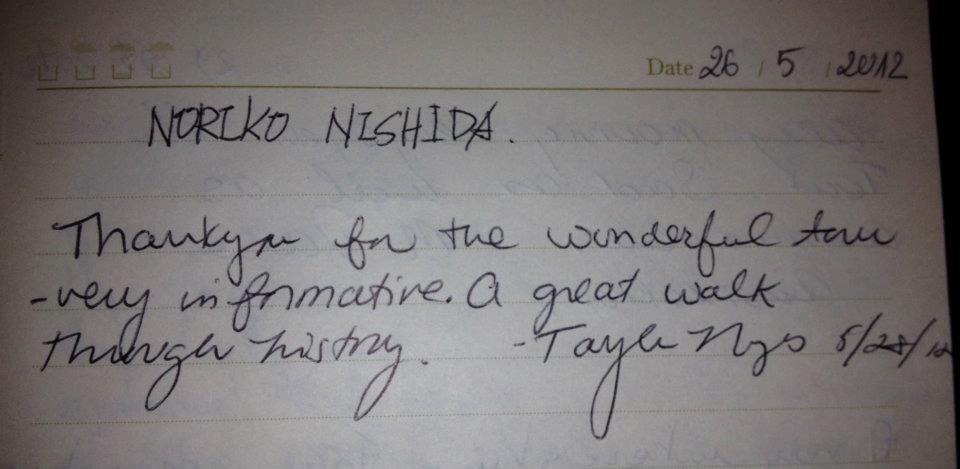 Date 26 / 5 / 2012
NORIKO NISHIDA.
Thankyou for the wonderful tour
-very informative. A great walk
through history. -Tayle 5/28/12